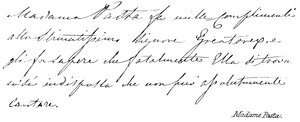 Madama Pasta fa mille complimenti
alle Stimatissimo Signore Greatorex, e
gli fa sapere che fatalmente Ella si trova
così indisposta che non può assolutamente
cantare.
Madame Pasta.